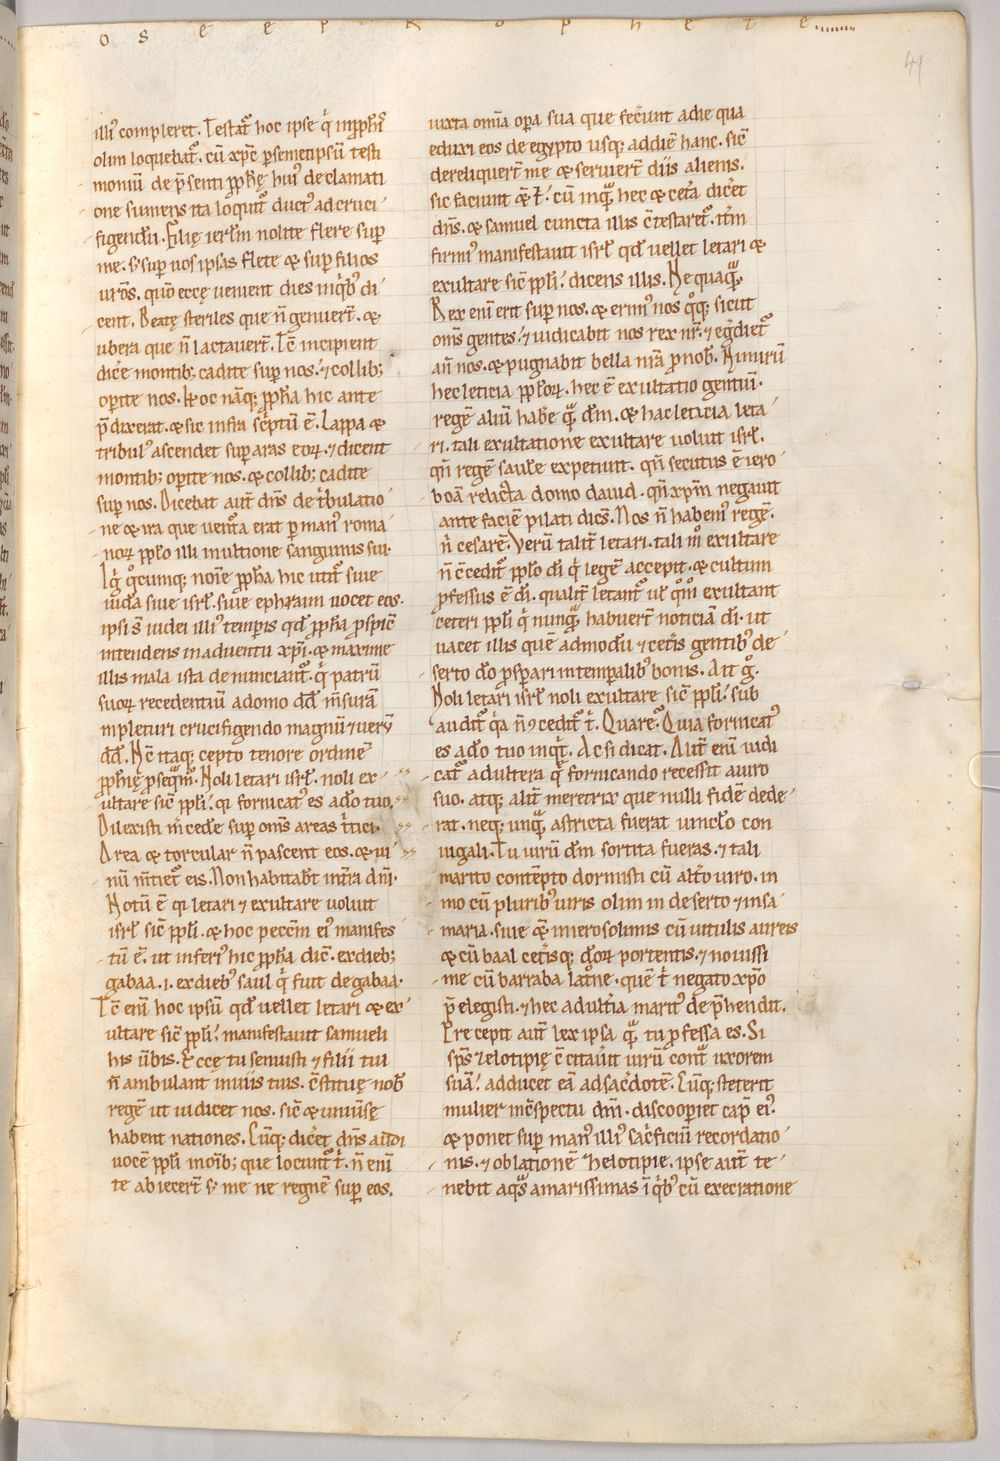 o s e e p r o p h e t e
49
illi9 compleret. Testat᷑ hoc ipse q̇ in pph̄is
olim loquebat᷑. cū xp̄c p semetipsū testi
moniū de p̄senti pph̄ę hui9 declamati
one sumens ita loquit᷑ duct9 ad cruci
figendū. Filię ierl̄m nolite flere sup
me. s; sup nos ipsas flete & sup filios
ur̄os. quō eccę uenient dies in qb9 di
cent. Beatę steriles que n̄ genuer̄t. &
ubera que n̄ lactauer̄t. Tc̄ incipient
dic̄e montib; cadite sup nos. ⁊ collib;
opite nos. Hoc nāq; pph̄a hic ante
p̄dixerat. & sic infra sc̄ptū ē. Lappa &
tribul9 ascendet sup aras eoꝝ. ⁊ dicent
montib; opite nos. & collib; cadite
sup nos. Dicebat aut̄ dn̄s de t̄bulatio
ne & ira que uent̄a erat p man9 roma
noꝝ pplo illi in ultione sanguinis sui.
Igͥ qͦcumq; noīe pph̄a hic utit᷑ siue
iuda siue isrl̄. siue ephraim uocet eos.
ipsi s̄ iudei illi9 tempis qd̄ pph̄a pspic̄
intendens in aduentu xp̄i. & maxime
illis mala ista denunciant᷑. qͥ patrū
suoꝝ recedentiū a domo dd̄ m̄surā
impleturi crucifigendo magnū ⁊ uerū
dd̄. Hc̄ itaq; cepto tenore ordinē
pph̄ię pseqm̄. Noli letari isrl̄. noli ex
ultare sic̄ ppli. qi fornicat9 es a dō tuo.
Dilexisti m̄cedē sup om̄s areas t̄tici.
Area & torcular n̄ pascent eos. & ui
nū m̄tiet᷑ eis. Non habitab̄t in t̄ra dn̄i.
Notū ē qi letari ⁊ exultare uoluit
isrl̄ sic̄ ppli. & hoc peccm̄ ei9 manifes
tū ē. ut inferi9 hic pph̄a dic̄. ex dieb;
gabaa. i. ex dieb9 saul qͥ fuit de gabaa.
Tc̄ enī hoc ipsū qd̄ uellet letari & ex
ultare sic̄ ppli. manifestauit samueli
his ūbis. Ecce tu senuisti ⁊ filii tui
n̄ ambulant in uiis tuis. c̄stitue nob̄
regē ut iudicet nos. sic̄ & uniūsę
habent nationes. Cūq; dic̄et dn̄s audi
uocē ppli in oīb; que locunt᷑ t̄. n̄ enī
te abiecer̄t s; me ne regnē sup eos.
iuxta om̄ia opa sua que fec̄unt a die qua
eduxi eos de egypto usq; ad diē hanc. sic̄
dereliquer̄t me & seruier̄t diis alienis.
sic faciunt & t̄. cū inqͣ hec & cet̄a dic̄et
dn̄s. & samuel cuncta illis c̄testaret᷑. it̄m
firmi9 manifestauit isrl̄ qd̄ uellet letari &
exultare sic̄ ppli. dicens illis. Nequaqͣ.
Rex enī erit sup nos. & erim9 nos qͦq; sicut
om̄s gentes. ⁊ iudicabit nos rex nr̄. ⁊ egͤdiet᷑
an̄ nos. & pugnabit bella nr̄a p nob̄. Nimirū
hec leticia pploꝝ. hec ē exultatio gentiū.
regē aliū habē qͣ dm̄. & hac leticia leta
ri. tali exultatione exultare uoluit isrl̄.
qn̄ regē saulē expetiuit. qn̄ secutus ē iero
boā relicta domo dauid. qn̄ xp̄m negauit
ante faciē pilati dic̄s. Nos n̄ habem9 regē.
n̄ cesarē. Verū talit̄ letari. tali m̊ exultare
n̄ c̄cedit᷑ pplo di qͥ legē accepit. & cultum
pfessus ē di. qualit̄ letant᷑ ul̄ qͦm̊ exultant
ceteri ppli qͥ nunqͣ habuer̄t noticiā di. ut
uacet illis quēadmodū ⁊ cet̄is gentib9 de
serto dō pspari in tempalib9 bonis. Ait gͦ.
Noli letari isrl̄ noli exultare sic̄ ppli. sub
audit᷑ qͥa n̄ ꝯcedit᷑ t̄. Quare. Quia fornicat9
es a dō tuo inqͥt. Ac si dicat. Aut̄ enī uidi
cat᷑ adultera qͤ fornicando recessit a uiro
suo. atq; alit̄ meretrix que nulli fidē dede
rat. neq; unqͣ astricta fuerat uinclo con
iugali. Tu uirū dm̄ sortita fueras. ⁊ tali
marito contēpto dormisti cū alt̄o uiro. im
mo cū plurib9 uiris olim in deserto ⁊ in sa
maria. siue & in ierosolimis cū uitulis aureis
& cū baal cet̄isq; dōꝝ portentis. ⁊ nouissi
me cū barraba latr̄one. quē t̄ negato xp̄o
p̄elegisti. ⁊ hec adult̄ia marit9 dep̄hendit.
Precepit aut̄ lex ipsa qͣ tu pfessa es. Si
sps̄ zelotipię c̄citauit uirū cont̄ uxorem
suā. adducet eā ad sac̄dotē. Cūq; steterit
mulier in c̄spectu dn̄i. discooperiet cap̄ ei9.
& ponet sup man9 illi9 sac̄ficiū recordatio
nis. ⁊ oblationē zhelotipie. ipse aut̄ te
nebit aqͣs amarissimas ī qͥb9 cū execratione